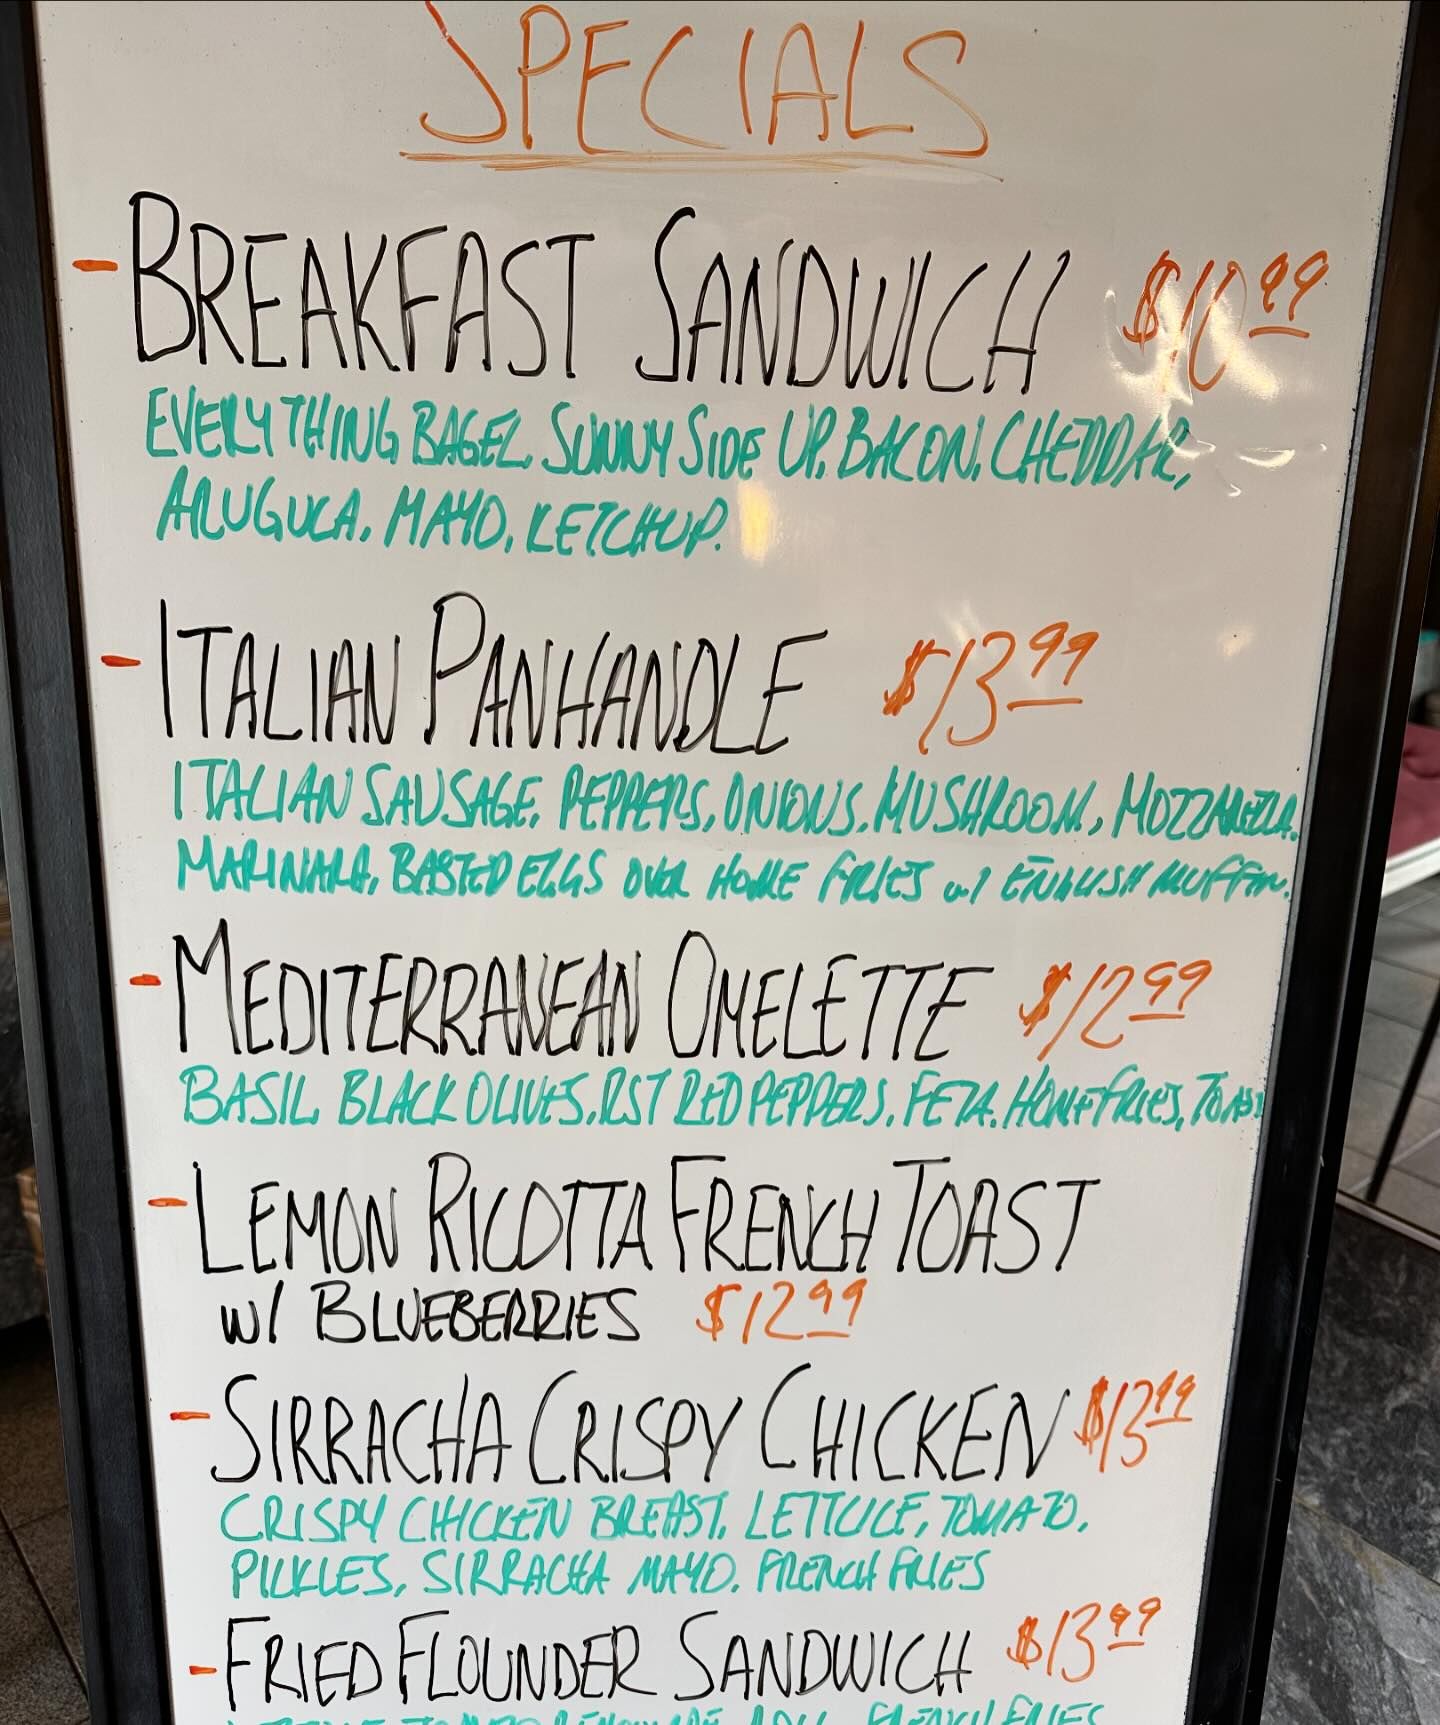 SPECIALS
- BREAKFAST SANDWICH $10.99
EVERYTHING BAGEL, SUNNY SIDE UP, BACON, CHEDDAR,
ARUGULA, MAYO, KETCHUP.
- ITALIAN PANHANDLE $13.99
ITALIAN SAUSAGE, PEPPERS, ONIONS, MUSHROOM, MOZZARELLA,
MARINARA, BASTED EGGS OVER HOME FRIES w/ ENGLISH MUFFIN.
- MEDITERRANEAN OMELETTE $12.99
BASIL, BLACK OLIVES, RST RED PEPPERS, FETA. HOMEFRIES, TOAST
- LEMON RICOTTA FRENCH TOAST
W/ BLUEBERRIES $12.99
- SIRRACHA CRISPY CHICKEN $13.99
CRISPY CHICKEN BREAST, LETTUCE, TOMATO,
PICKLES, SIRRACHA MAYO. FRENCH FRIES
- FRIED FLOUNDER SANDWICH $13.99
FRENCH FRIES